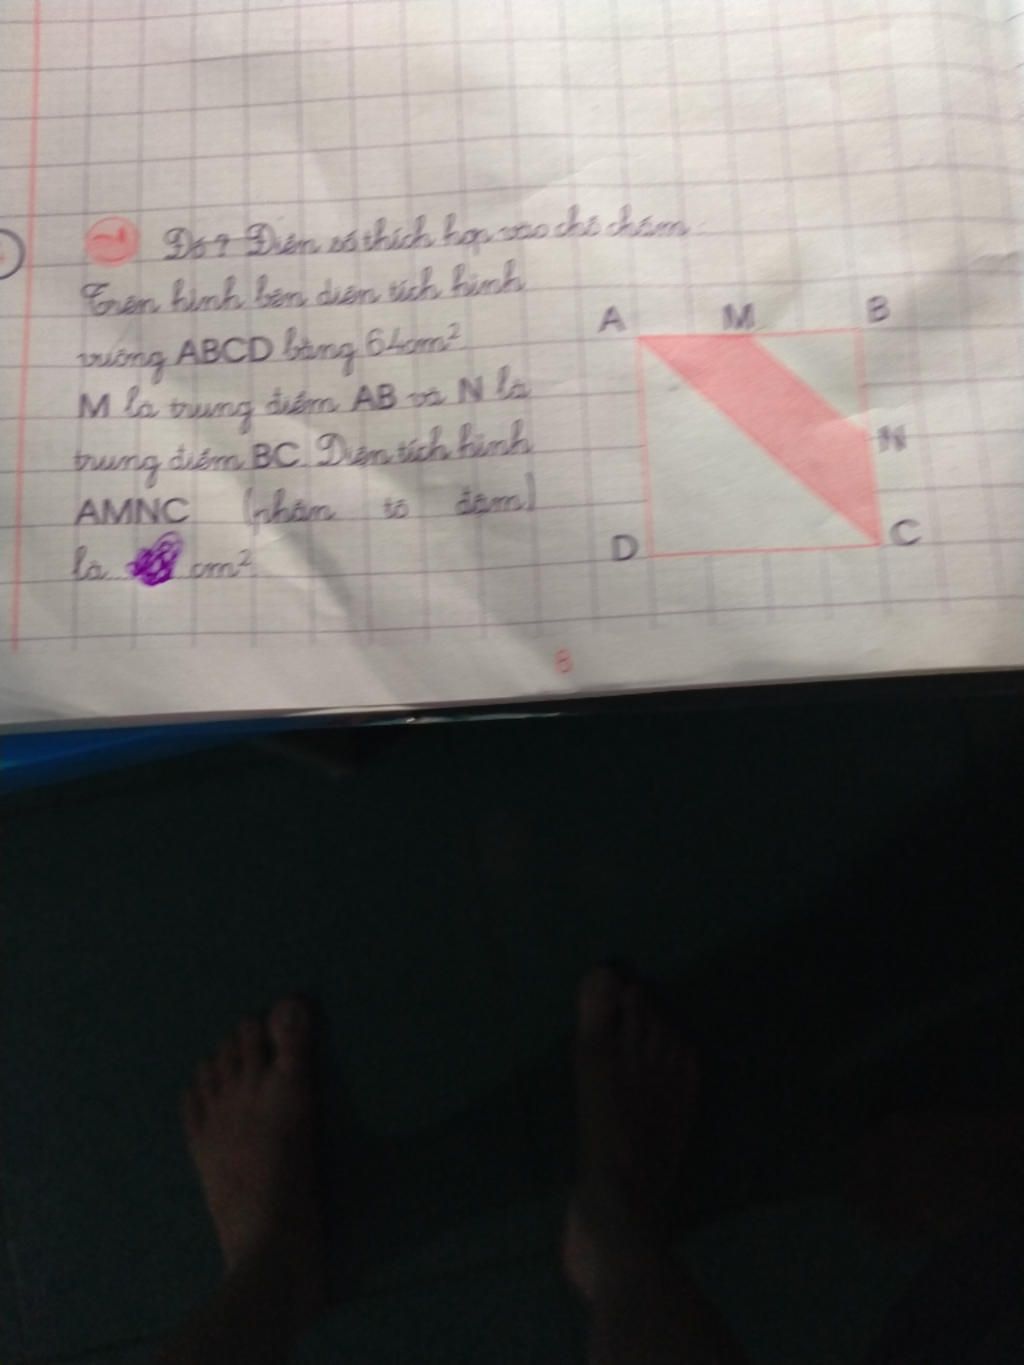 Đố? Điền số thích hợp vào chỗ chấm:
Trên hình bên diện tích hình
vuông ABCD bằng 64cm²
M là trung điểm AB và N là
trung điểm BC. Diện tích hình
AMNC (phần tô đậm)
là cm²
A M B
N
D C
8